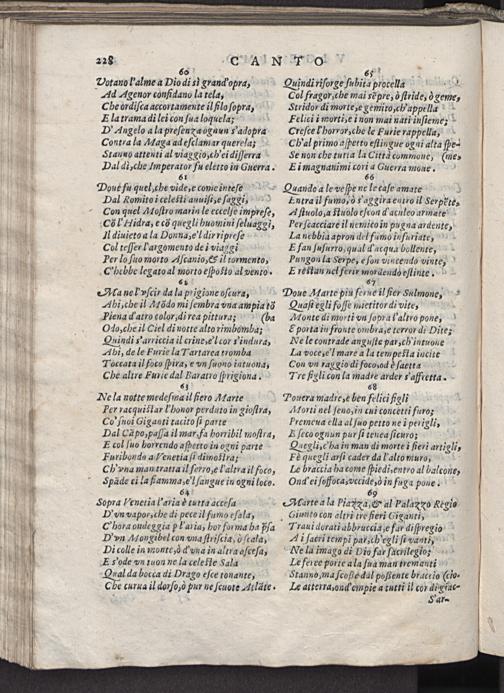 228 CANTO
60
Votano l'alme a Dio di sì grand'opra,
Ad Agenor confidano la tela,
Che ordisca accortamente il filo sopra,
E la trama di lei con sua loquela;
D'Angelo a la presenza ognun s'adopra
Contra la Maga ad esclamar querela;
Stauno attenti al viaggio, ch'ei disserra
Dal dì, che Imperator fu eletto in Guerra.
61
Doue fu quel, che vide, e come intese
Dal Romito i celesti auuisi, e saggi,
Con quel Mostro marin le eccelse imprese,
Cõ l'Hidra, e cõ quegli huomini seluaggi,
Il diuieto a la Donna, e l'dir riprese
Col tesser l'argomento de i viaggi
Per lo suo morto Ascanio, & il tormento,
C'hebbe legato al morto esposto al vento.
62
Ma ne l'vscir da la prigione oscura,
Ahi, che il Mõdo mi sembra vna ampia tõ
Piena d'atro color, di rea pittura; (ba
Odo, che il Ciel di notte alto rimbomba;
Quindi s'arriccia il crine, e'l cor s'indura,
Ahi, de le Furie la Tartarea tromba
Toccata il foco spira, e vn suono intuona,
Che altre Furie dal Baratro sprigiona.
63
Ne la notte medesma il fiero Marte
Per racquistar l'honor perduto in giostra,
Co' suoi Giganti tacito si parte
Dal Cãpo, passa il mar, fa horribil mostra,
E col suo horrendo aspetto in ogni parte
Furibondo a Venetia si dimostra;
Ch'vna man tratta il ferro, e l'altra il foco,
Spãde ei la fiamma, e'l sangue in ogni loco.
64
Sopra Venetia l'aria è tutta accesa
D'vn vapor, che di pece il fumo esala,
C'hora ondeggia p l'aria, hor forma ha p̃sa
D'vn Mongibel con vna striscia, ò scala,
Di colle in monte, ò d'vna in altra ascesa,
E s'ode vn tuon ne la celeste Sala
Qual da bocca di Drago esce tonante,
Che curua il dorso, ò pur ne scuote Atlãte.
65
Quindi risorge subita procella
Col fragor, che mai sẽpre, ò stride, ò geme,
Stridor di morte, e gemito, ch'appella
Felici i morti, e i non mai nati insieme;
Cresce l'horror, che le Furie rappella,
Ch'al primo aspetto estingue ogni alta spe-
Se non che tutta la Città commoue, (me,
E i magnanimi cori a Guerra moue.
66
Quando a le vespe ne le case amate
Entra il fumo, ò s'aggira entro il Serpẽte,
A stuolo, a stuolo escon d'aculeo armate
Per scacciare il nemico in pugna ardente,
La nebbia apron del fumo infuriate,
E fan susurro, qual d'acqua bollente,
Pungon la Serpe, e son vincendo vinte,
E restan nel ferir mordendo estinte.
67
Doue Marte più ferue il fier Sulmone,
Quasi egli fosse mietitor di vite,
Monte di morti vn sopra l'altro pone,
E porta in fronte ombra, e terror di Dite;
Ne le contrade anguste par, ch'intuone
La voce, e'l mare a la tempesta incite
Con vn raggio di foco, od è saetta
Tre figli con la madre arder s'affretta.
68
Pouera madre, e ben felici figli
Morti nel seno, in cui concetti furo;
Premeua ella al suo petto ne i perigli,
E seco ognun pur si tenea sicuro;
Quegli, c'ha in man di morte i fieri artigli,
Fè quegli arsi cader da l'alto muro,
Le braccia ha come spiedi, entro al balcone,
Ond'ei soffoca, vccide, ò in fuga pone.
69
Marte a la Piazza, & al Palazzo Regio
Giunto con altri tre fieri Giganti,
Traui dorati abbruccia, e far dispregio
A i sacri tempi par, ch'egli si vanti,
Ne la imago di Dio far sacrilegio;
Le ferree porte a la sua man tremanti
Stanno, ma scosse dal possente braccio (cio-
Le atterra, ond'empie a tutti il cor di giac-
Sar-